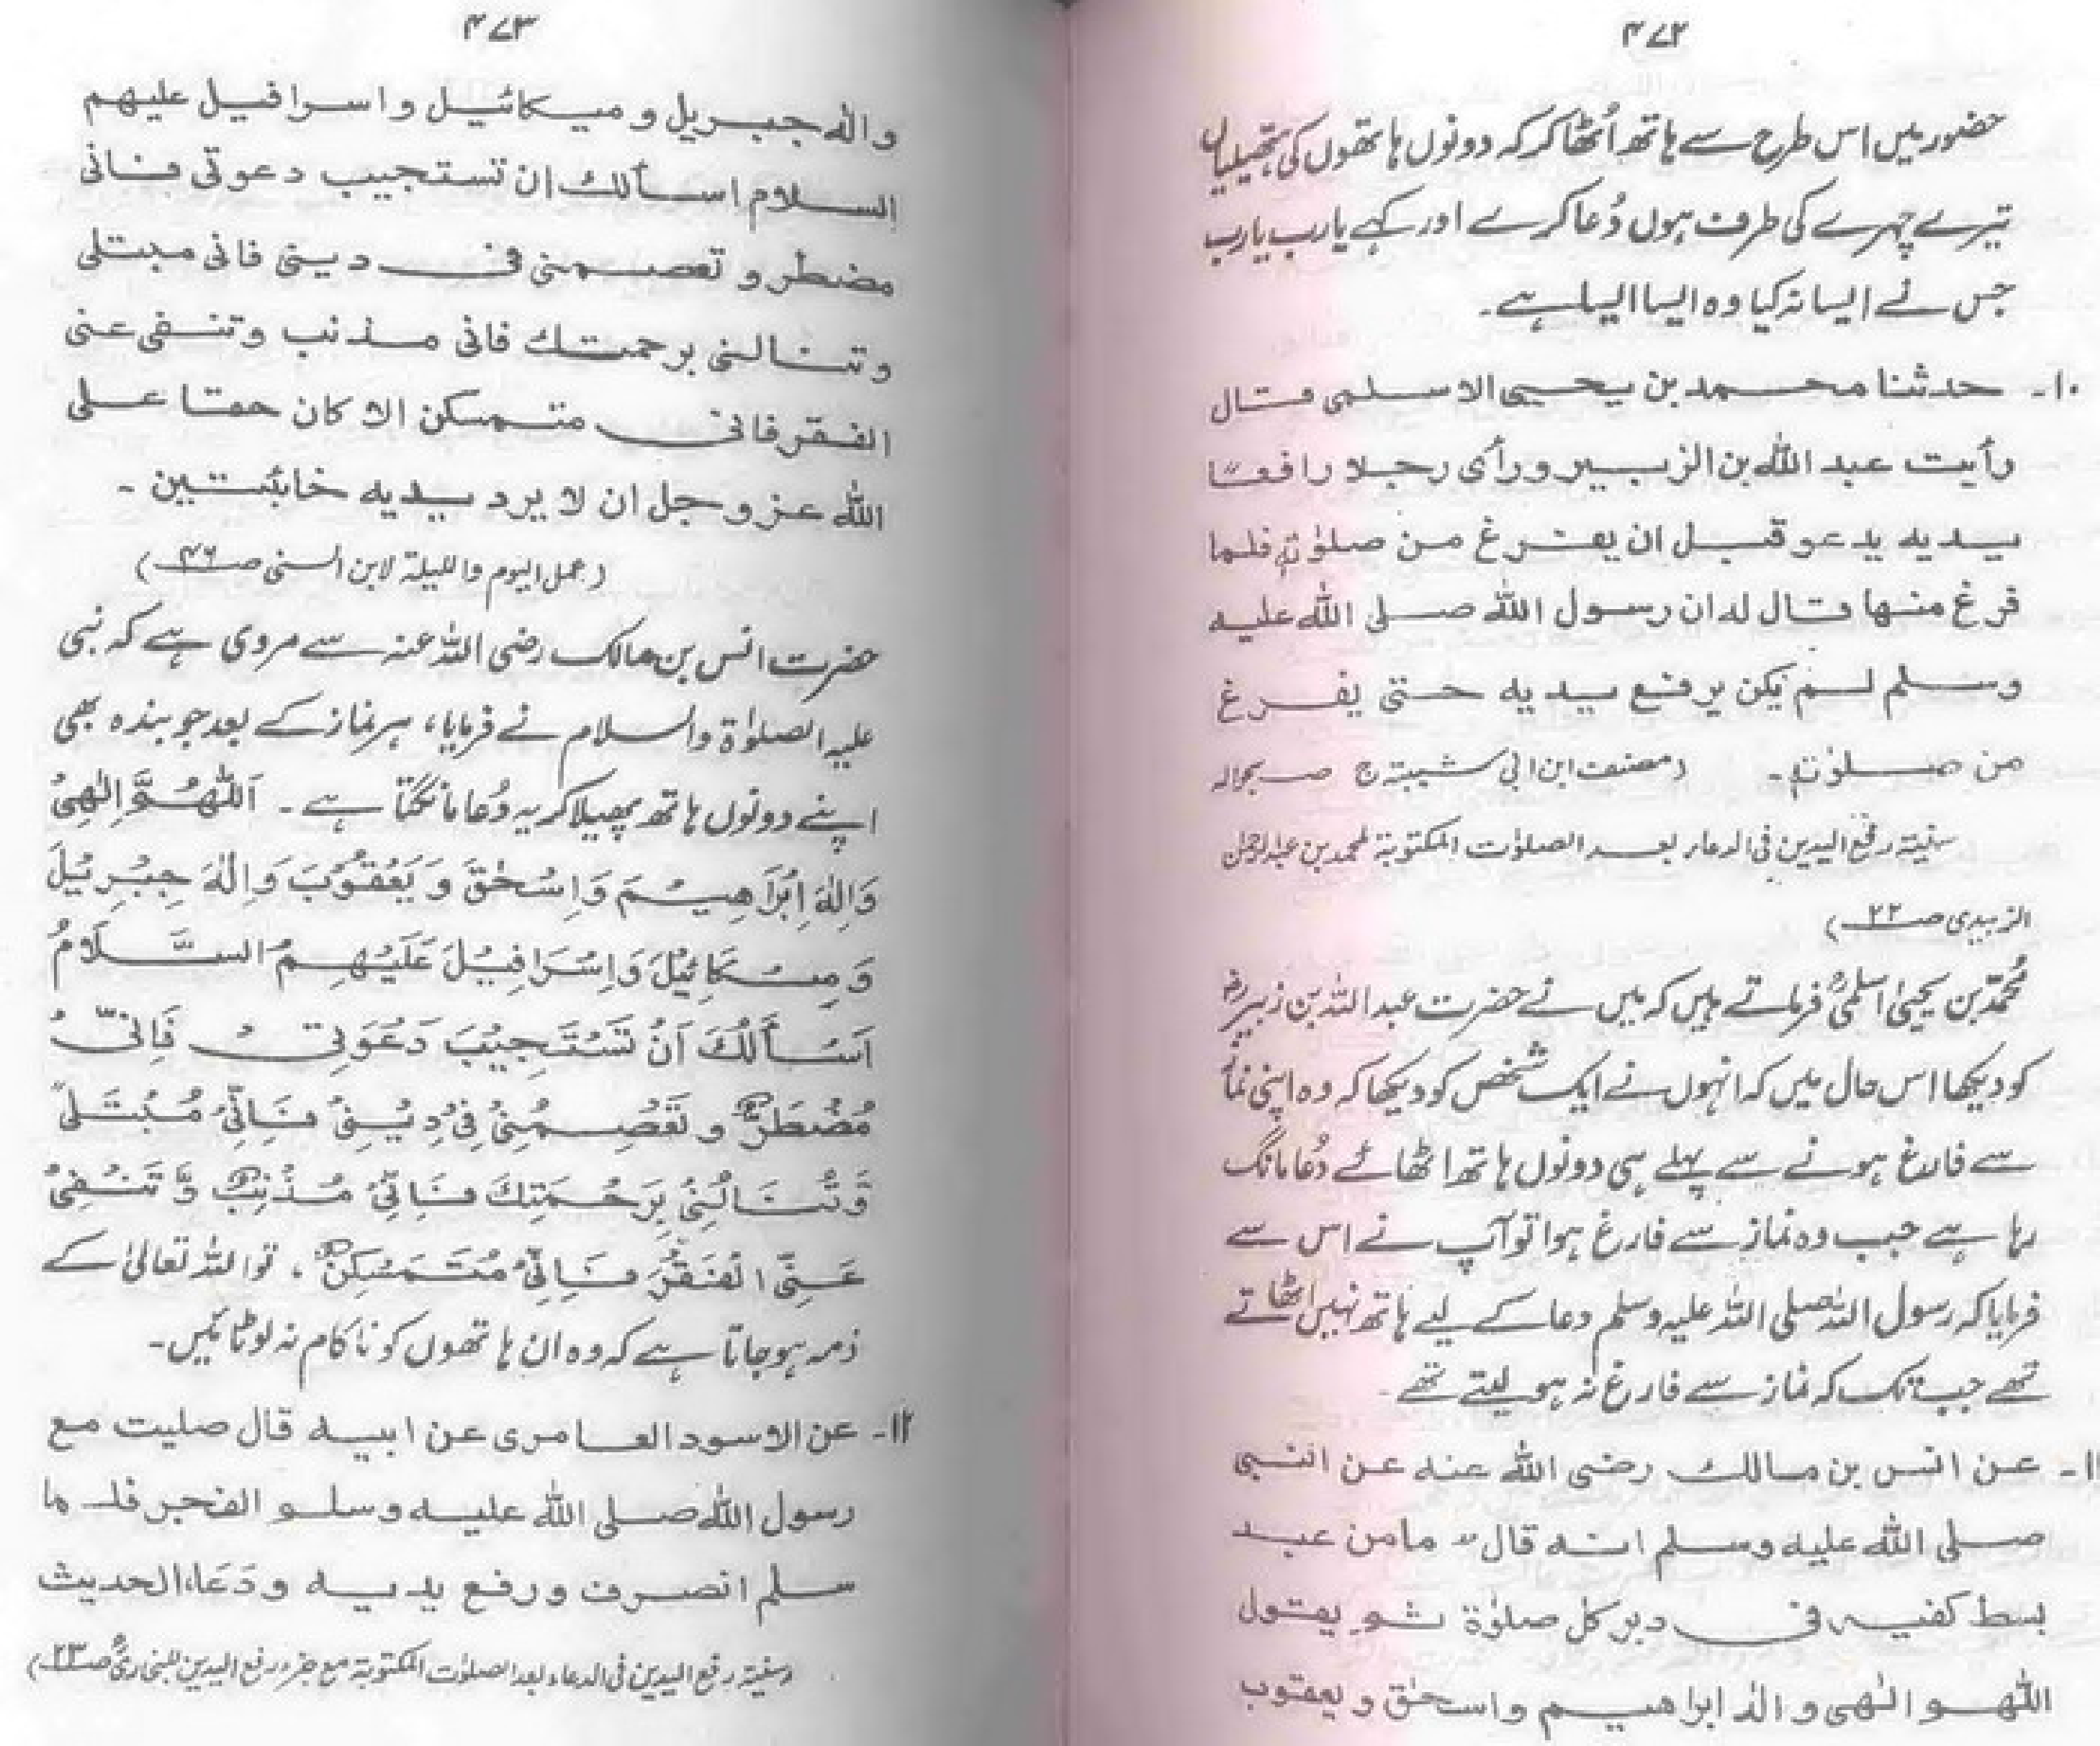 ۴۷۲
حضور میں اس طرح سے ہاتھ اُٹھا کر کہ دونوں ہاتھوں کی ہتھیلیاں
تیرے چہرے کی طرف ہوں دُعا کرے اور کہے یارب یارب
جس نے ایسا نہ کیا وہ ایسا ایسا ہے۔
۱۰۔ حدثنا محمد بن یحیی الاسلمی قال
رأیت عبد اللہ بن الزبیر ورأی رجلا رافعًا
یدیہ یدعو قبل ان یفرغ من صلوٰتہ فلما
فرغ منها قال لہ ان رسول اللہ صلی اللہ علیہ
وسلم لم یکن یرفع یدیہ حتی یفرغ
من صلوٰتہ۔ (مصنف ابن ابی شیبۃ ج صـ بحوالہ
سنیۃ رفع الیدین فی الدعاء بعد الصلوٰت المکتوبۃ لمحمد بن عبدالرحمٰن
الزبیدی صـ۲۲)
محمّد بن یحییٰ اسلمیؒ فرماتے ہیں کہ میں نے حضرت عبد اللہ بن زبیرؓ
کو دیکھا اس حال میں کہ انہوں نے ایک شخص کو دیکھا کہ وہ اپنی نماز
سے فارغ ہونے سے پہلے ہی دونوں ہاتھ اٹھائے دُعا مانگ
رہا ہے جب وہ نماز سے فارغ ہوا تو آپ نے اس سے
فرمایا کہ رسول اللہ صلی اللہ علیہ وسلم دعا کے لیے ہاتھ نہیں اٹھاتے
تھے جب تک کہ نماز سے فارغ نہ ہو لیتے تھے۔
۱۱۔ عن انس بن مالك رضی اللہ عنہ عن النبی
صلی اللہ علیہ وسلم انہ قال مامن عبد
بسط کفیہ فی دبر کل صلوٰۃ ثم یقول
اللھم الٰھی والٰہ ابراھیم واسحٰق ویعقوب
۴۷۳
والٰہ جبریل ومیکائیل واسرافیل علیھم
السلام اسألك ان تستجیب دعوتی فانی
مضطر وتعصمنی فی دینی فانی مبتلی
وتنالنی برحمتك فانی مذنب وتنفی عنی
الفقر فانی متمسکن الا کان حقا علی
اللہ عز وجل ان لا یرد یدیہ خائبتین۔
(عمل الیوم واللیلۃ لابن السنی صـ۴۶)
حضرت انس بن مالک رضی اللہ عنہ سے مروی ہے کہ نبی
علیہ الصلوٰۃ والسلام نے فرمایا، ہر نماز کے بعد جو بندہ بھی
اپنے دونوں ہاتھ پھیلا کر یہ دُعا مانگتا ہے۔ اَللّٰھُمَّ اِلٰھِیْ
وَاِلٰہَ اِبْرَاھِیْمَ وَاِسْحٰقَ وَیَعْقُوْبَ وَاِلٰہَ جِبْرِئِیْلَ
وَمِیْکَائِیْلَ وَاِسْرَافِیْلَ عَلَیْھِمُ السَّلَامُ
اَسْأَلُكَ اَنْ تَسْتَجِیْبَ دَعْوَتِیْ فَاِنِّیْ
مُضْطَرٌّ وَتَعْصِمُنِیْ فِیْ دِیْنِیْ فَاِنِّیْ مُبْتَلیً
وَّتَنَالُنِیْ بِرَحْمَتِكَ فَاِنِّیْ مُذْنِبٌ وَّتَنْفِیْ
عَنِّی الْفَقْرَ فَاِنِّیْ مُتَمَسْکِنٌ، تو اللہ تعالیٰ کے
ذمہ ہو جاتا ہے کہ وہ ان ہاتھوں کو ناکام نہ لوٹائیں۔
۱۲۔ عن الاسود العامری عن ابیہ قال صلیت مع
رسول اللہ صلی اللہ علیہ وسلم الفجر فلما
سلم انصرف ورفع یدیہ ودَعَا، الحدیث
(سنیۃ رفع الیدین فی الدعاء بعد الصلوٰت المکتوبۃ مع جزء رفع الیدین للبخاریؒ صـ۲۳)